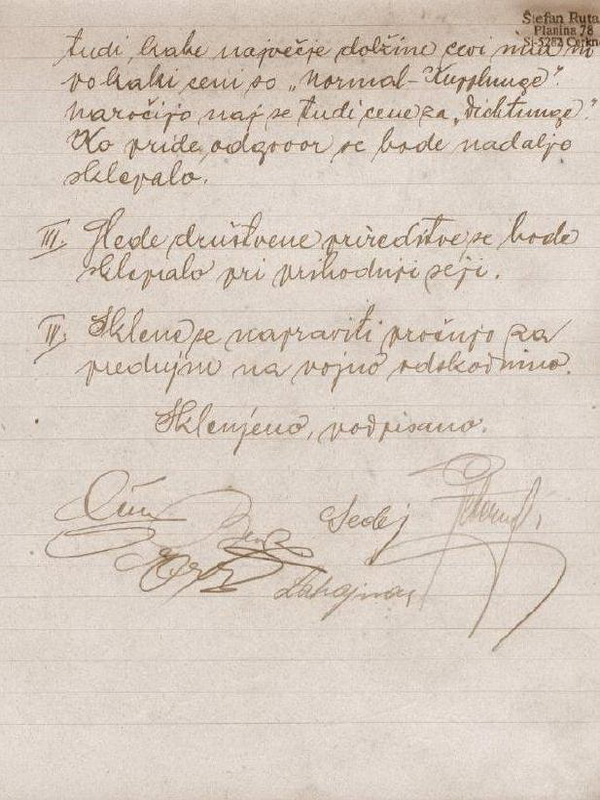 Štefan Ruta
Planina 78
SI-5282 Cerkno
tudi kake največje dolžine cevi
po kaki ceni so „Normal-Kupplunge".
naročijo naj se tudi cene za „Dichtunge."
Ko pride odgovor se bode nadaljo
sklepalo.
III. Glede društvene prireditve se bode
sklepalo pri prihodnji seji.
IV. Sklene se napraviti prošnjo za
predujm na vojno odškodnino.
Sklenjeno, podpisano.
Sedej